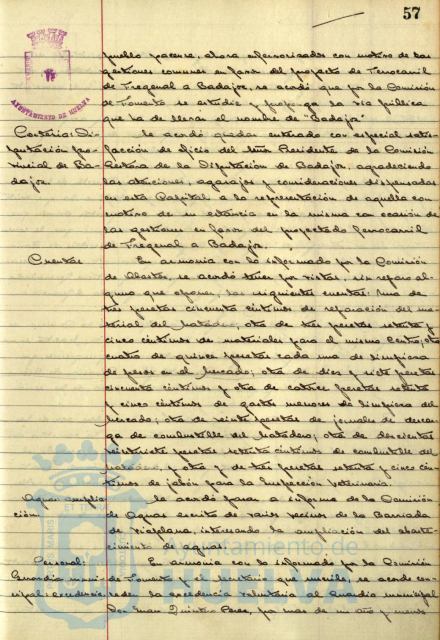 57
AYUNTAMIENTO DE HUELVA
pueblo pacense, ahora exteriorizadas con motivo de las
gestiones comunes en favor del proyecto de Ferrocarril
de Fregenal a Badajoz, se acordó que por la Comisión
de Fomento se estudie y proponga la vía pública
que ha de llevar el nombre de "Badajoz"
Cortesía: Di-
putación pro-
vincial de Ba-
dajoz.
Se acordó quedar enterado con especial satis-
facción de oficio del Señor Presidente de la Comisión
Gestora de la Diputación de Badajoz, agradeciendo
las atenciones, agasajos y consideraciones dispensadas
en esta Capital a la representación de aquella con
motivo de su estancia en la misma con ocasión de
las gestiones en favor del proyectado ferrocarril
de Fregenal a Badajoz.
Cuentas
En armonía con lo informado por la Comisión
de Abastos, se acordó tener por vistas, sin reparo al-
guno que oponer, las siguientes cuentas: Una de
tres pesetas cincuenta céntimos de reparación del ma-
terial del Matadero; otra de tres pesetas setenta y
cinco céntimos de materiales para el mismo Centro; otra
cuatro de quince pesetas cada una de limpieza
de pesos en el Mercado; otra de diez y siete pesetas
cincuenta céntimos y otra de catorce pesetas setenta
y cinco céntimos de gastos menores de limpieza del
Mercado; otra de veinte pesetas de jornales de descar-
ga de combustible del Matadero; otra de doscientas
veintisiete pesetas setenta céntimos de combustible del
Matadero, y otra y de tres pesetas setenta y cinco cén-
timos de jabón para la Inspección Veterinaria.
Aguas: amplia-
ción:
Se acordó pasar a informe de la Comisión
de Aguas escrito de varios vecinos de la Barriada
de interesando la ampliación del abaste-
cimiento de aguas.
Personal:
Guardia muni-
cipal: excedencia
En armonía con lo informado por la Comisión
de Fomento y el Secretario que suscribe, se acordó con-
ceder la excedencia voluntaria al Guardia municipal
Don Juan Quintero Pérez, por más de un año y menos
Ayuntamiento de
HUELVA